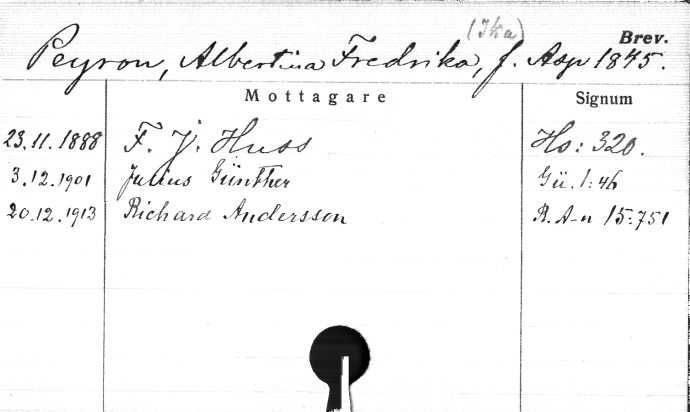 (Ika)
Brev.
Peyron, Albertina Fredrika, f. Asp 1845.
Mottagare Signum
23.11.1888 F. J. Huss Hs: 320.
3.12.1901 Julius Günther Gü. 1:46
20.12.1913 Richard Andersson R. A-n 15:751